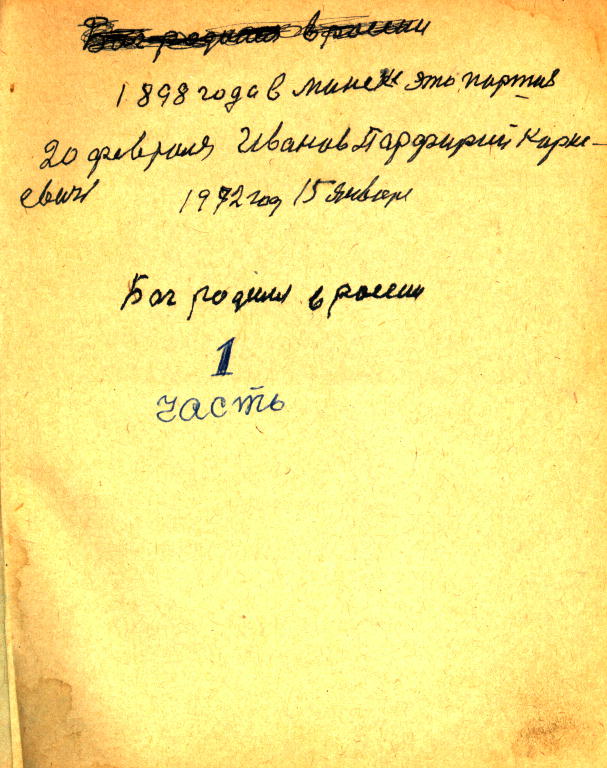 Бог родился в россии
1898 года в минске это партия
20 февраля Иванов Парфирий Корне-
евич 1972 год 15 январе
Бог родился в россии
1
часть